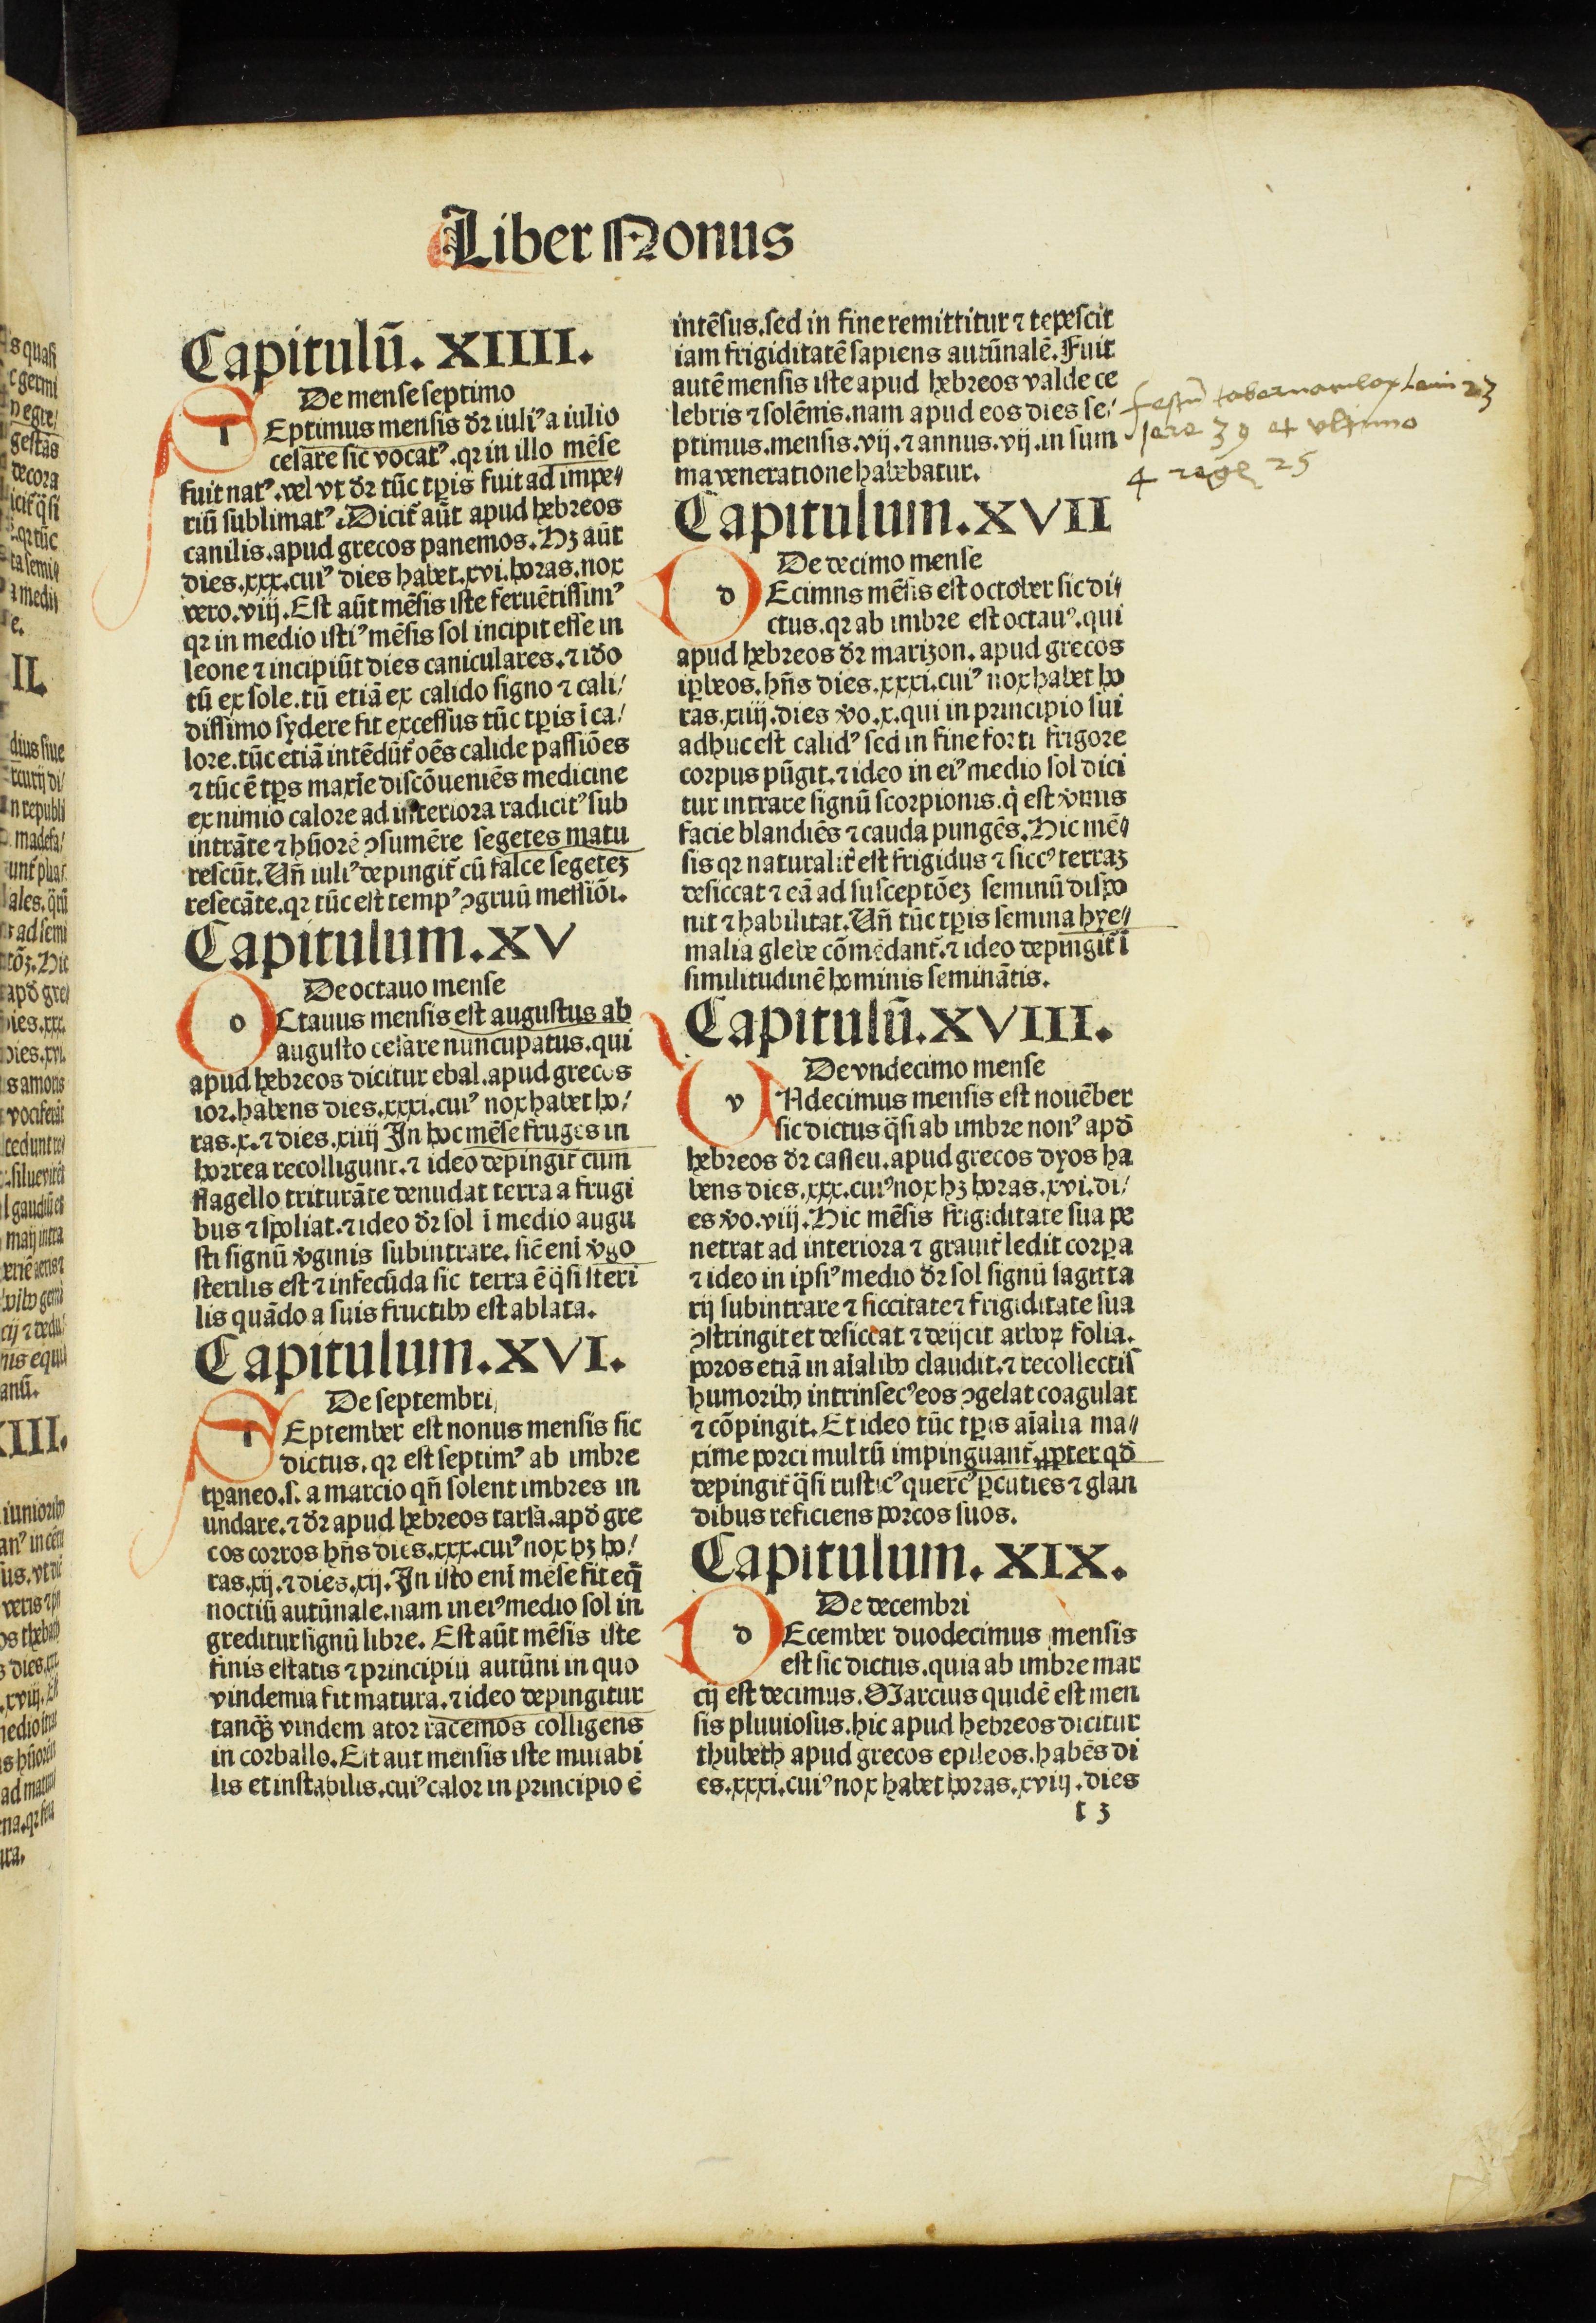 Liber Nonus
Capitulū. XIIII.
De mense septimo
SEptimus mensis dr̄ iuliꝰ a iulio
cesare sic vocatꝰ. qꝛ in illo mēse
fuit natꝰ. vel vt dr̄ tūc tꝑis fuit ad impe⸗
riū sublimatꝰ. Dicit̄ aūt apud hebreos
canilis. apud grecos panemos. Hꝫ aūt
dies. xxx. cuiꝰ dies habet. xvi. horas. nox
vero. viij. Est aūt mēsis iste feruētissimꝰ
qꝛ in medio istiꝰ mēsis sol incipit esse in
leone ⁊ incipiūt dies caniculares. ⁊ iďo
tū ex sole. tū etiā ex calido signo ⁊ cali/
dissimo sydere fit excessus tūc tꝑis ī ca/
lore. tūc etiā intēdūt̄ oēs calide passiōes
⁊ tūc ē tꝑs maxīe discōueniēs medicine
ex nimio calore ad interiora radicitꝰ sub
intrāte ⁊ hūorē ꝯsumēre segetes matu
rescūt. Uñ iuliꝰ depingit̄ cū falce segetes
resecāte. qꝛ tūc est tempꝰ ꝯgruū messiōī.
Capitulum. XV
De octauo mense
OCtauus mensis est augustus ab
augusto cesare nuncupatus. qui
apud hebreos dicitur ebal. apud grecos
ior. habens dies. xxxi. cuiꝰ nox habet ho/
ras. x. ⁊ dies. xiiij In hoc mēse fruges in
horrea recolligunt. ⁊ ideo depingit̄ cum
flagello triturāte denudat terra a frugi
bus ⁊ spoliat. ⁊ ideo dr̄ sol ī medio augu
sti signū v̄ginis subintrare. sic̄ eni v̄go
sterilis est ⁊ infecūda sic terra ē q̄si steri
lis quādo a suis fructibꝰ est ablata.
Capitulum. XVI.
De septembri
SEptember est nonus mensis sic
dictus. qꝛ est septimꝰ ab imbre
tꝑaneo. s. a marcio qñ solent imbres in
undare. ⁊ dr̄ apud hebreos tarsa. apď gre
cos corros hñs dies. xxx. cuiꝰ nox hꝫ ho/
ras. xij. ⁊ dies. xij. In isto eni mēse fit eq̄
noctiū autūnale. nam in eiꝰ medio sol in
greditur signū libre. Est aūt mēsis iste
finis estatis ⁊ principiū autūni in quo
vindemia fit matura. ⁊ ideo depingitur
tanq̄ꝫ vindem ator racemos colligens
in corballo. Est aut mensis iste mutabi
lis et instabilis. cuiꝰ calor in principio ē
intēsus. sed in fine remittitur ⁊ tepescit
iam frigiditatē sapiens autūnalē. Fuit
autē mensis iste apud hebreos valde ce
lebris ⁊ solēnis. nam apud eos dies se/
ptimus. mensis. vij. ⁊ annus. vij. in sum
ma veneratione habebatur.
festū tabernaculoꝝ leui 23
Jere 39 et vltimo
4 reg 25
Capitulum. XVII
De decimo mense
DEcimns mēsis est october sic di⸗
ctus. qꝛ ab imbre est octauꝰ. qui
apud hebreos dr̄ marizon. apud grecos
iꝑbeos. hñs dies. xxxi. cuiꝰ nox habet ho
ras. xiiij. dies v̄o. x. qui in principio sui
adhuc est calidꝰ sed in fine forti frigore
corpus pūgit. ⁊ ideo in eiꝰ medio sol dici
tur intrare signū scorpionis. q̇ est v̄mis
facie blandiēs ⁊ cauda pungēs. Hic mē⸗
sis qꝛ naturalit̄ est frigidus ⁊ siccꝰ terraꝫ
desiccat ⁊ eā ad susceptōeꝫ seminū dispo
nit ⁊ habilitat. Uñ tūc tꝑis semina hye⸗
malia glebe cōmēdant̄. ⁊ ideo depingit̄ ī
similitudinē hominis seminātis.
Capitulū. XVIII.
De vndecimo mense
VNdecimus mensis est nouēber
sic dictus q̄si ab imbre nonꝰ apď
hebreos dr̄ casleu. apud grecos dyos ha
bens dies. xxx. cuiꝰ nox hꝫ horas. xvi. di/
es v̄o. viij. Hic mēsis frigiditate sua pe
netrat ad interiora ⁊ grauit̄ ledit corꝑa
⁊ ideo in ipsiꝰ medio dr̄ sol signū sagitta
rij subintrare ⁊ siccitate ⁊ frigiditate sua
ꝯstringit et desiccat ⁊ deijcit arboꝝ folia.
poros etiā in aīalibꝰ claudit. ⁊ recollectis
humoribꝰ intrinsecꝰ eos ꝯgelat coagulat
⁊ cōpingit. Et ideo tūc tꝑis aīalia ma⸗
xime porci multū impinguant̄. ꝓpter qď
depingit̄ q̄si rusticꝰ quercꝰ ꝑcuties ⁊ glan
dibus reficiens porcos suos.
Capitulum. XIX.
De decembri
DEcember duodecimus mensis
est sic dictus. quia ab imbre mar
cij est decimus. Marcius quidē est men
sis pluuiosus. hic apud hebreos dicitur
thubeth apud grecos epileos. habēs di
es. xxxi. cuiꝰ nox habet horas. xviij. dies
t 3